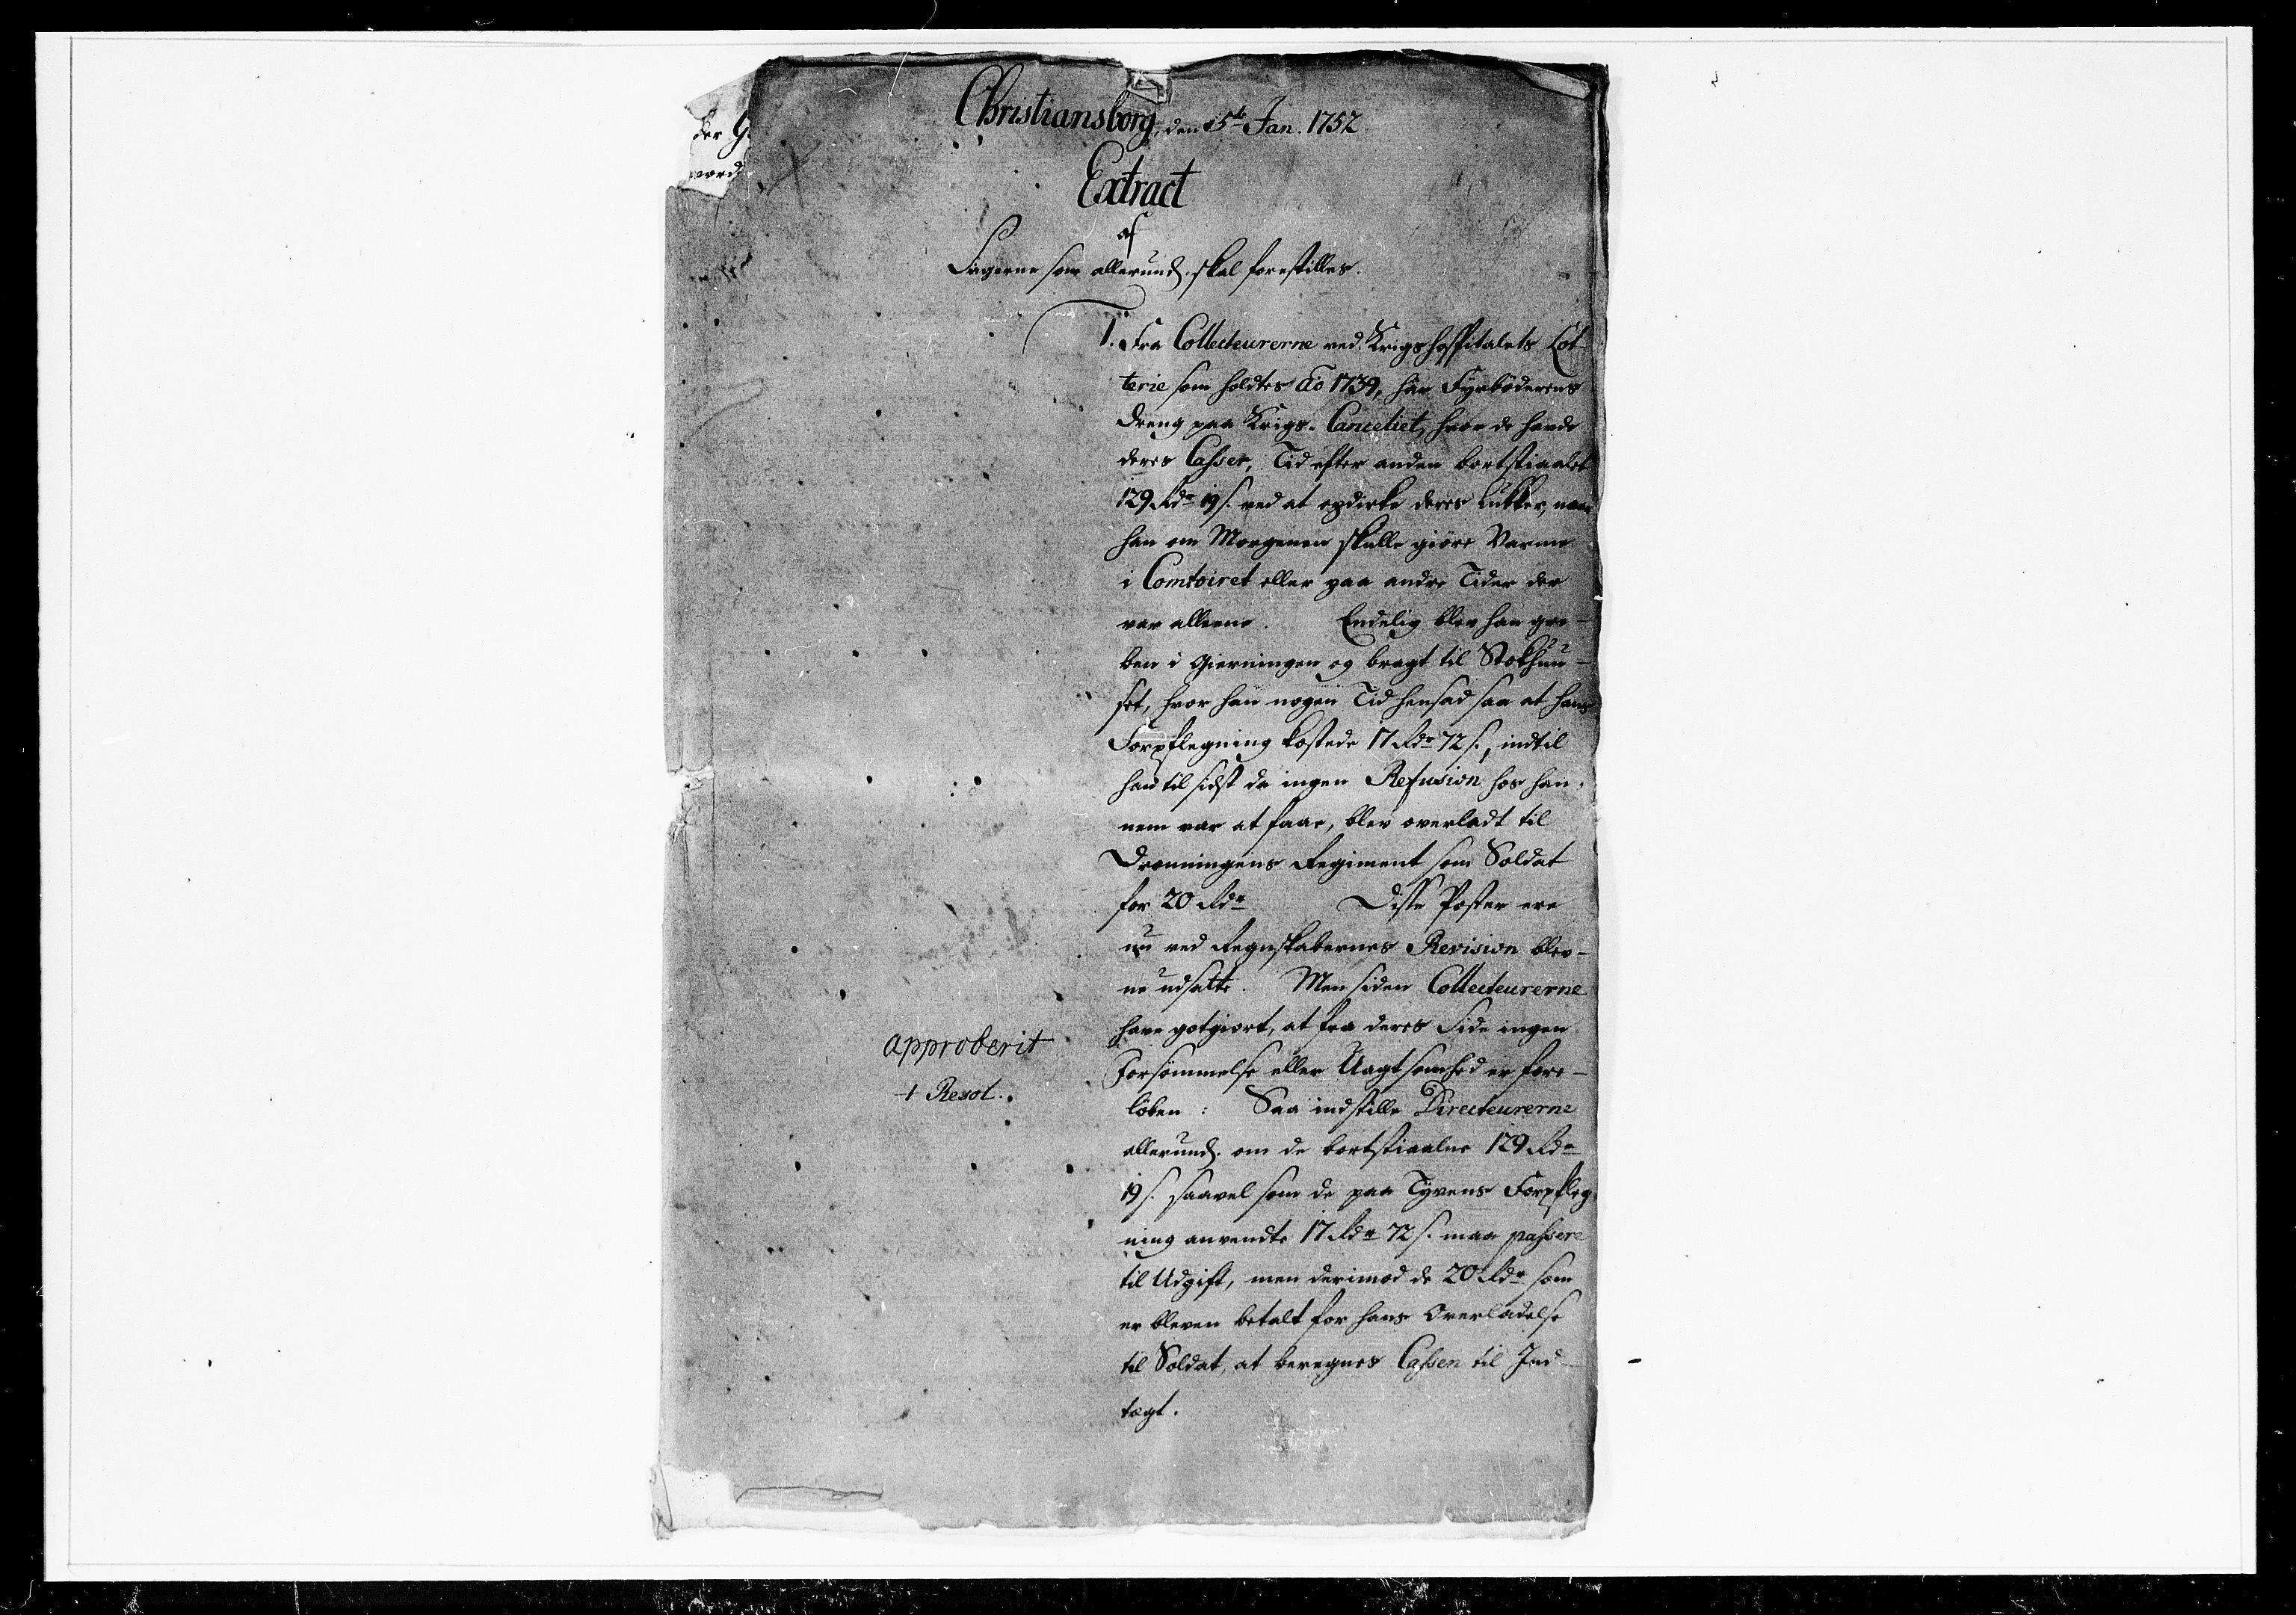 Christiansborg, den 15de Jan. 1752
Extract
af
Sagerne som allerund. skal forestilles.
1. Fra Collecteurerne ved Krigshospitalets Lot-
terie som holdtes Ao 1739, har Fyrbøderens
Dreng paa Krigs-Cancelliet, hvor de havde
deres Casser, Tid efter anden bortstiaalet
129 Rdr 19 s. ved at opdirke deres Lukker, naar
han om Morgenen skulle giøre Varme
i Comtoiret eller paa andre Tider der
var alleene. Endelig blev han gre-
ben i Gierningen og bragt til Stokhuu-
set, hvor han nogen Tid hensad saa at hans
Forpflegning kostede 17 Rdr 72 s., indtil
han til sidst da ingen Refusion hos han-
nem var at faae, blev overladt til
Dronningens Regiment som Soldat
for 20 Rdr Disse Poster ere
nu ved Regnskabernes Revision blev-
ne udsatte. Men siden Collecteurerne
have gotgiort, at fra deres Side ingen
Forsømmelse eller Uagtsomhed er fore-
løben: Saa indstille Directeurerne
allerund. om de bortstiaalne 129 Rdr
19 s. saavel som de paa Tyvens Forpfleg-
ning anvendte 17 Rdr 72 s. maa passere
til Udgift, men derimod de 20 Rdr som
er bleven betalt for hans Overladelse
til Soldat, at beregnes Cassen til Ind-
tægt.
approberit
+ Resol.
der G